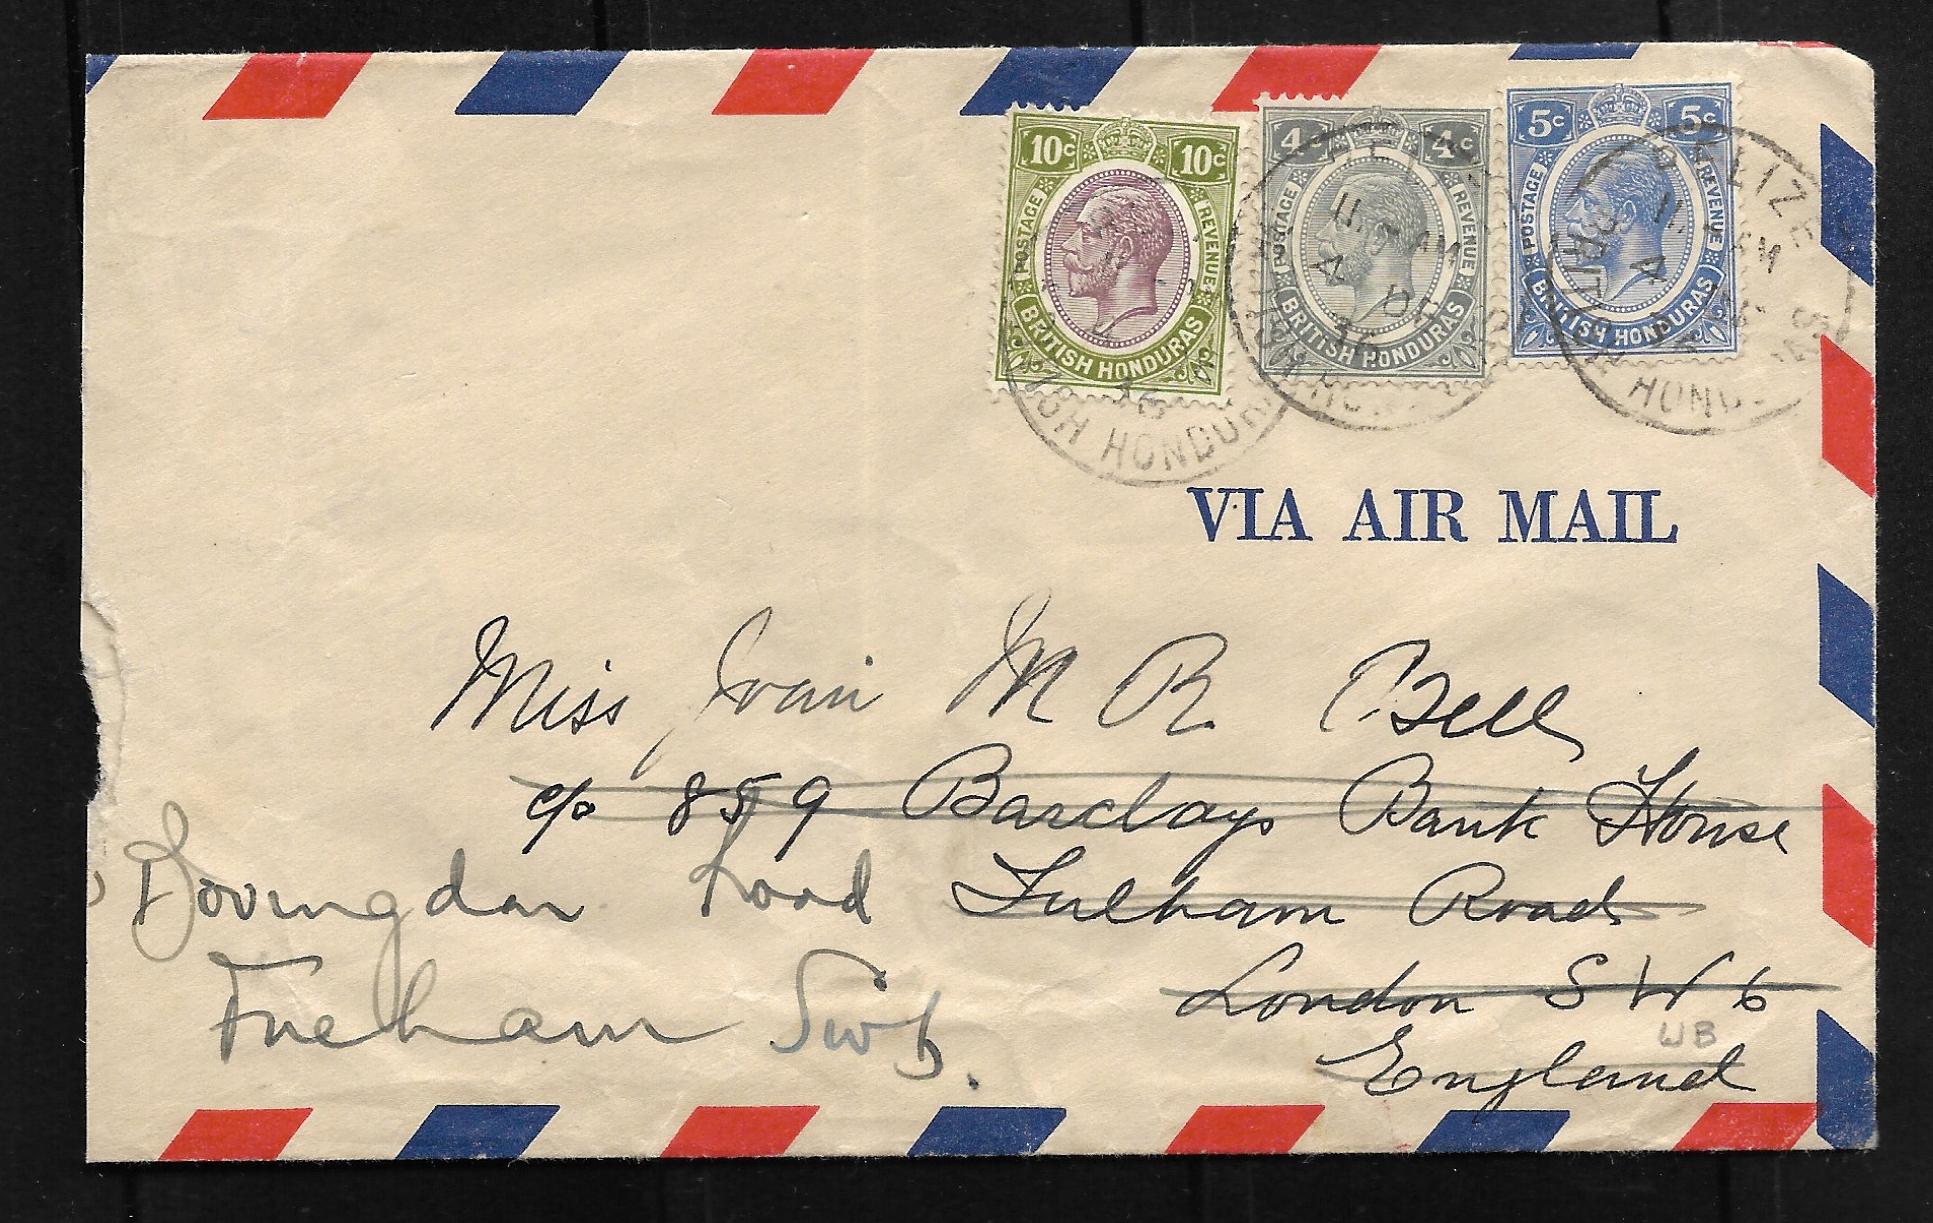 10c 10c
POSTAGE REVENUE
BRITISH HONDURAS
4 4c
POSTAGE REVENUE
BRITISH HONDURAS
5c 5c
POSTAGE REVENUE
BRITISH HONDURAS
ISH HONDUR
11 AM
4 DE
36
BELIZE
11 AM
4
BRITISH HOND
VIA AIR MAIL
Miss Joan M R Bell
c/o 859 Barclays Bank House
Fulham Road
London S W 6
England
WB
Dovingdan Road
Fulham SW6.